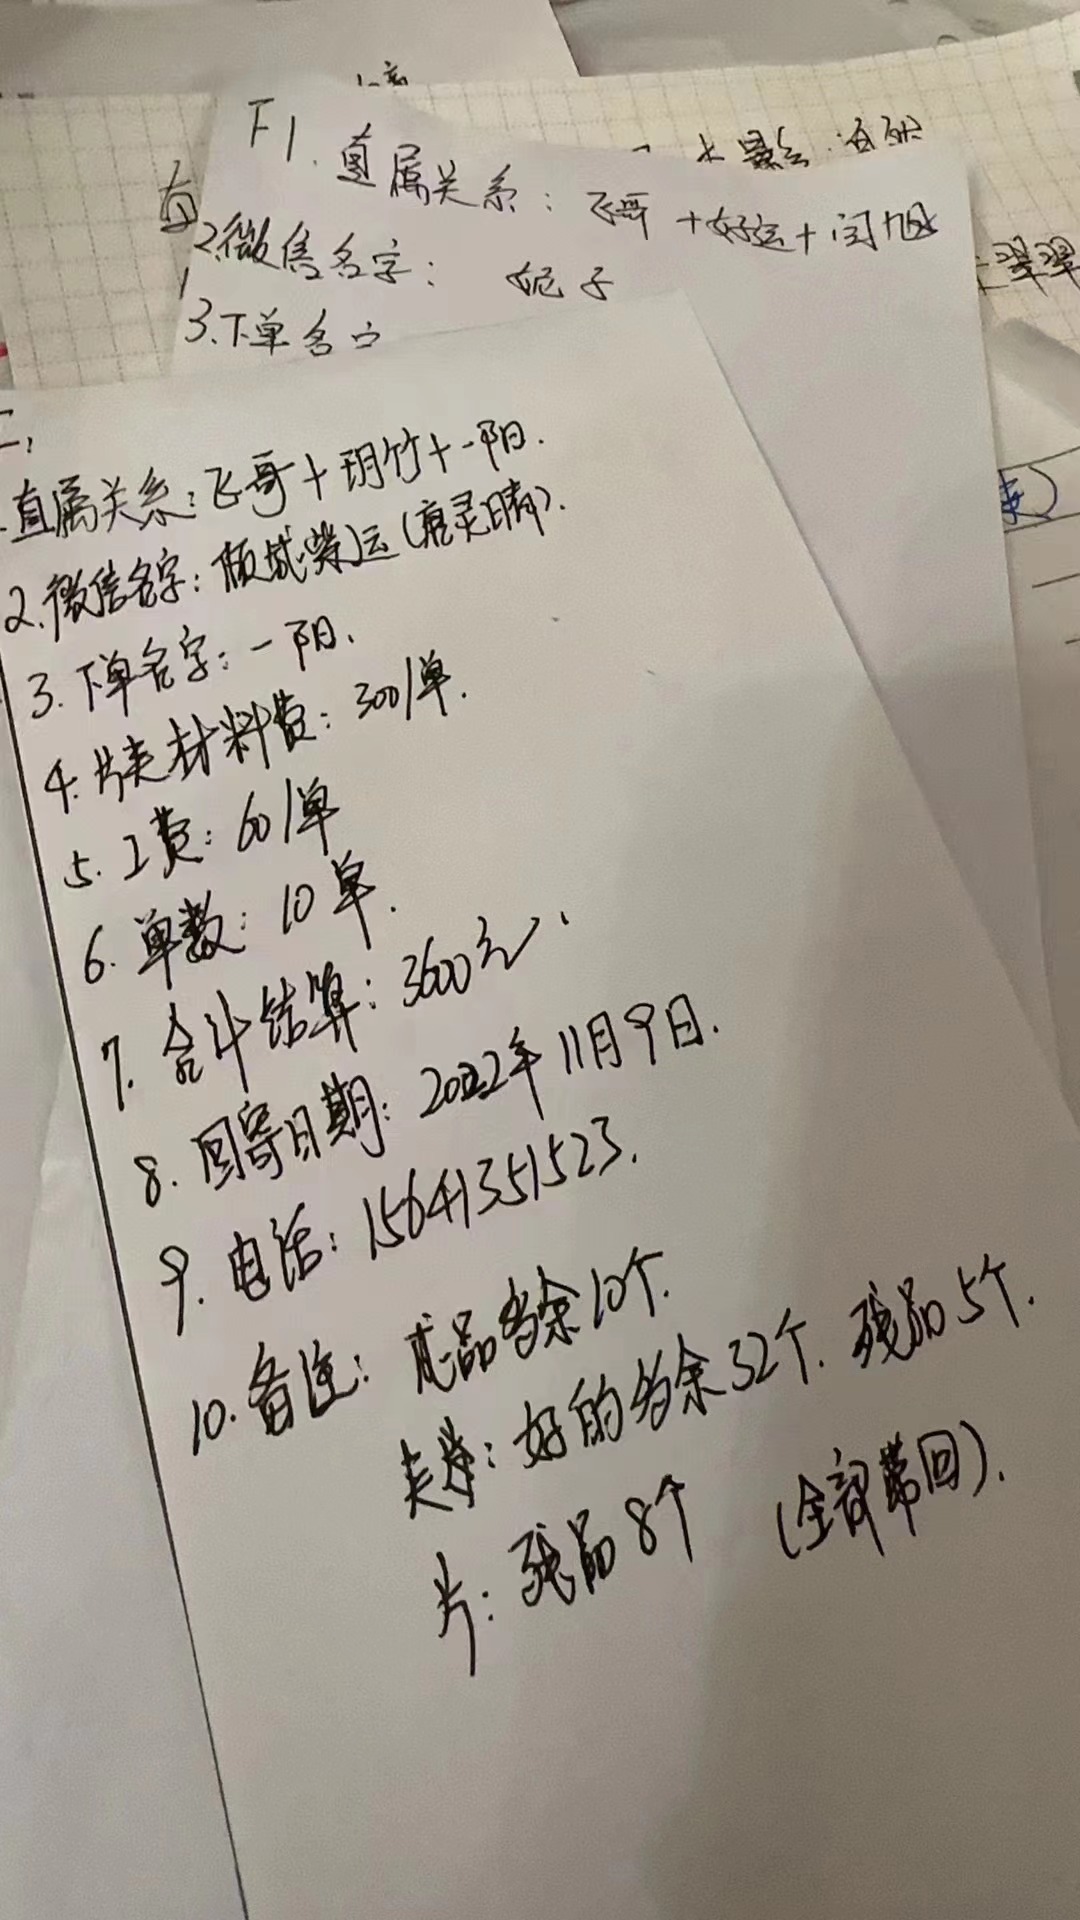 F1.直属关系：飞哥+好运+闫旭
2.微信名字：妮子
3.下单名
翠翠
夹）
直属关系：飞哥+玥竹+一阳.
2.微信名字：倾城紫运（唐灵晴）.
3.下单名字：一阳.
4.片夹材料费：300/单.
5.工费：60/单
6.单数：10单.
7.合计结算：3600元.
8.回寄日期：2022年11月9日.
9.电话：15641351523.
10.备注：成品多余10个.
夹举：好的多余32个.残品5个.
片：残品8个（全部带回）.